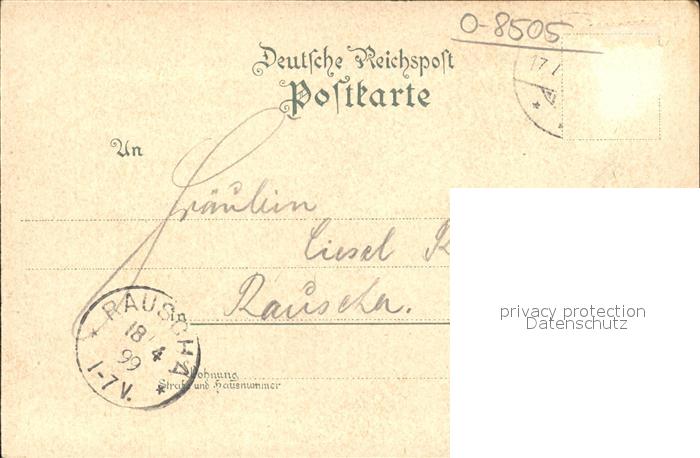 O-8505
Deutsche Reichspost
Postkarte
17
An
Fräulein
Liesel
Rauscha.
in
RAUSCHA
18/4
99
1-7 V.
Wohnung
Straße und Hausnummer
privacy protection
Datenschutz